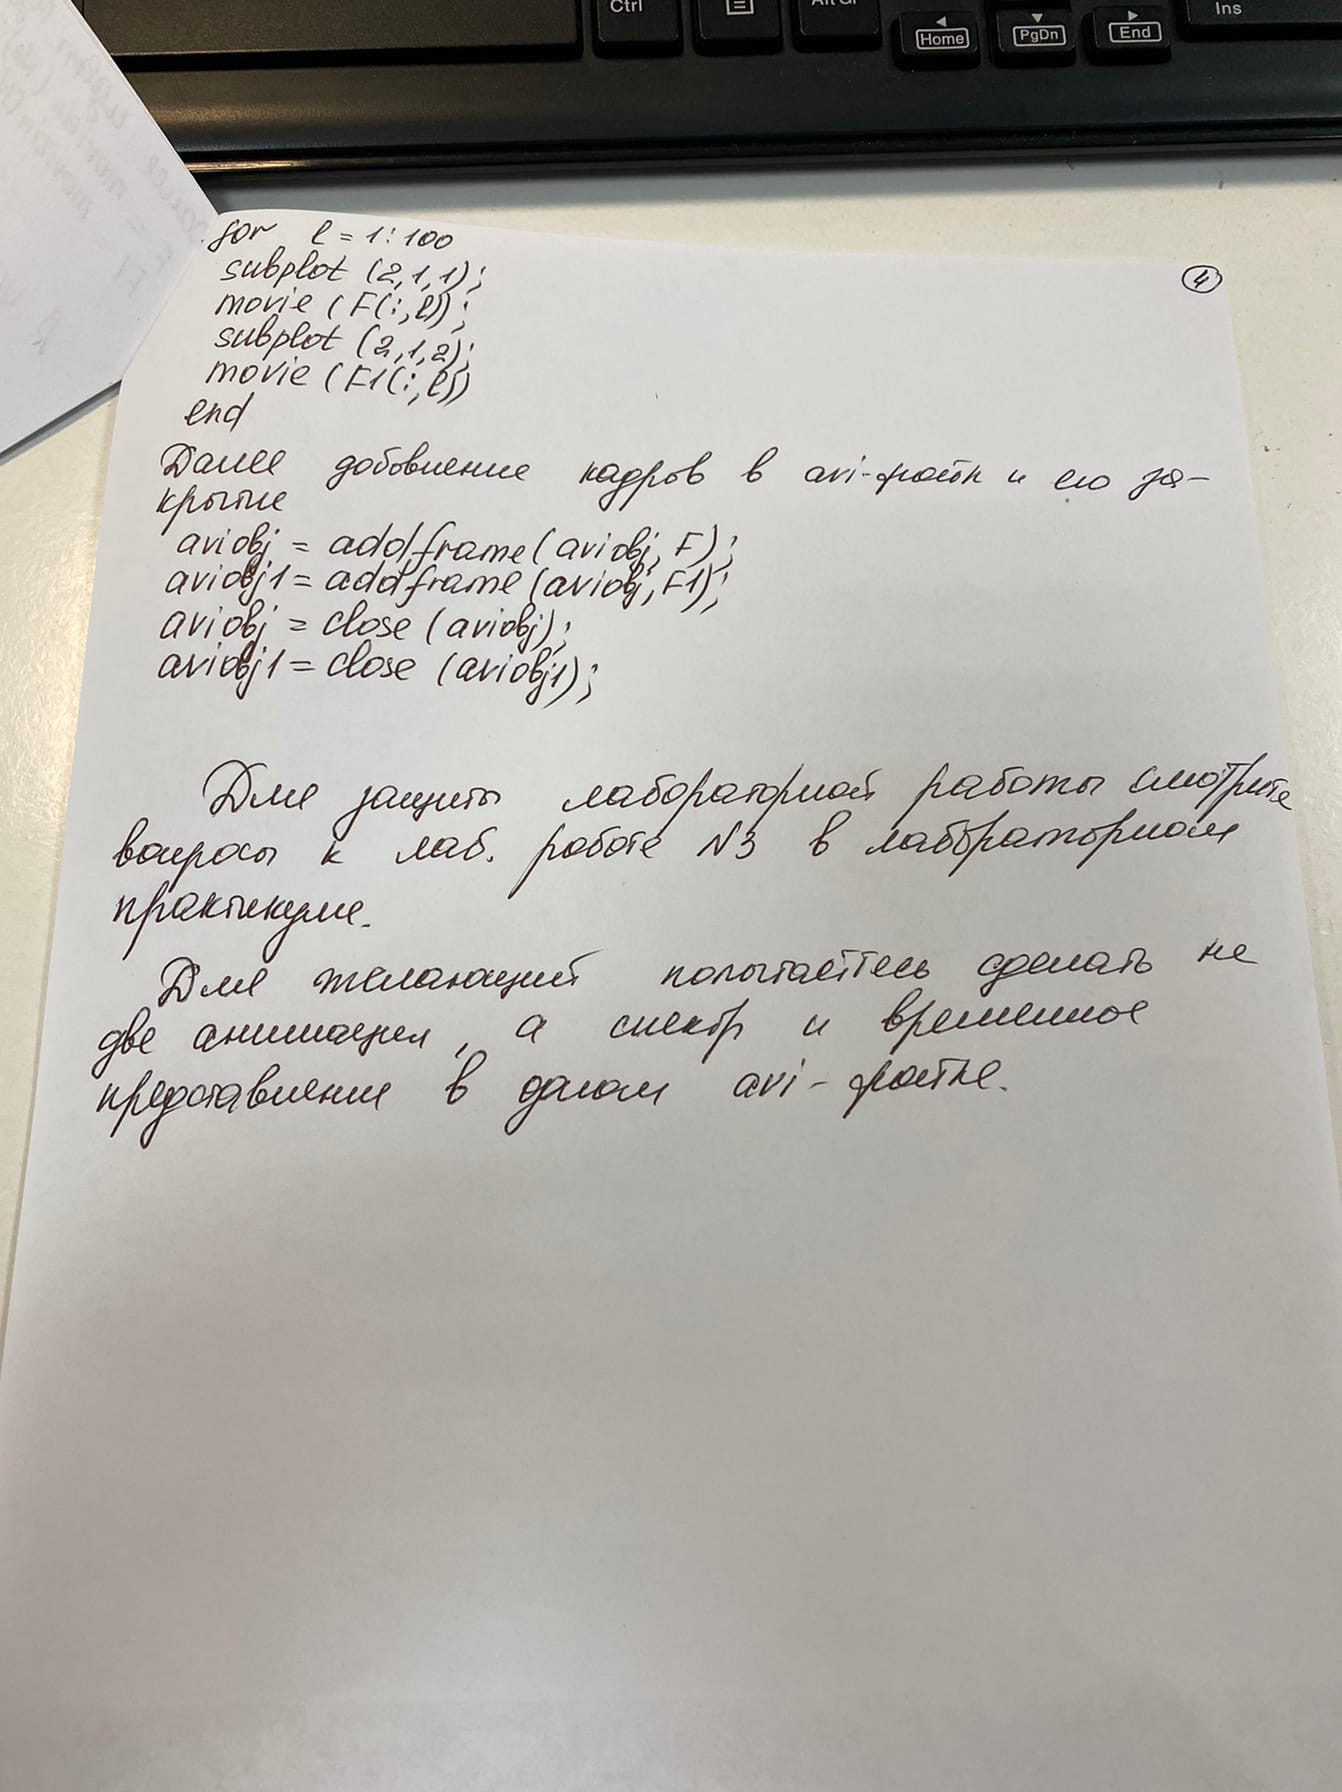 Ctrl
Alt Gr
Home
PgDn
End
Ins
4
for l = 1:100
subplot (2,1,1);
movie (F(:,l));
subplot (2,1,2);
movie (F1(:,l))
end
Далее добовление кадров в avi-файл и его за-
крытие
aviobj = addframe(aviobj, F);
aviobj1 = addframe (aviobj, F1);
aviobj = close (aviobj);
aviobj1 = close (aviobj1);
Для защиты лабораторной работы смотрите
вопросы к лаб. работе N3 в лабораторном
практикуме.
Для желающий попытайтесь сделать не
две анимация, а спектр и временное
представление в одном avi-файле.